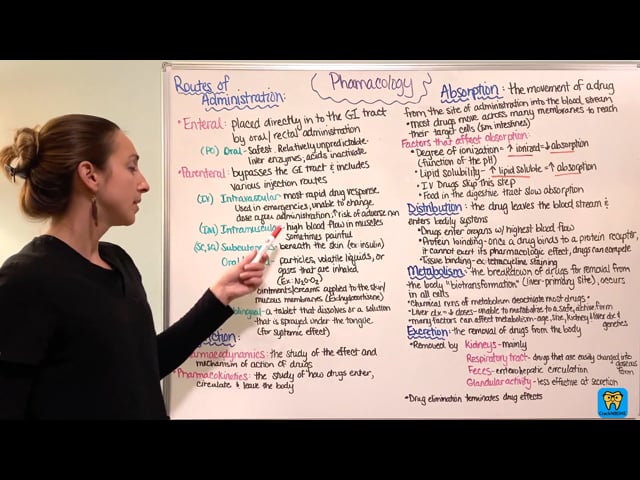 Pharmacology
Routes of
Administration:
• Enteral: placed directly in to the GI tract
by oral/rectal administration
(PO) Oral - safest. Relatively unpredictable -
liver enzymes; acids inactivate
• Parenteral: bypasses the GI tract & includes
various injection routes
(IV) Intravascular - most rapid drug response.
Used in emergencies, unable to change
dose after administration, ↑ risk of adverse rxn
(IM) Intramuscular - high blood flow in muscles
sometimes painful
(SC, SQ) Subcutaneous - beneath the skin (ex: insulin)
Oral - particles, volatile liquids, or
gases that are inhaled
(Ex: N2O-O2)
ointments/creams applied to the skin/
mucous membranes
lingual - a tablet that dissolves or a solution
that is sprayed under the tongue
(for systemic effect)
Pharmacodynamics: the study of the effect and
mechanism of action of drugs
Pharmacokinetics: the study of how drugs enter,
circulate & leave the body
Absorption: the movement of a drug
from the site of administration into the blood stream
• most drugs move across many membranes to reach
their target cells (sm intestines)
Factors that affect absorption:
• Degree of ionization - ↑ ionized = ↓ absorption
(function of the pH)
• Lipid solubility - ↑ lipid soluble = ↑ absorption
• IV Drugs skip this step
• Food in the digestive tract slow absorption
Distribution: the drug leaves the blood stream &
enters bodily systems
• Drugs enter organs w/ highest blood flow
• Protein binding - once a drug binds to a protein receptor,
it cannot exert its pharmacologic effect, drugs can compete
• Tissue binding - ex: tetracycline staining
Metabolism: the breakdown of drugs for removal from
the body "biotransformation" (liver - primary site), occurs
in all cells
• Chemical rxns of metabolism deactivate most drugs •
• Liver dx = ↓ doses - unable to metabolize to a safe, active form
• many factors can affect metabolism - age, size, kidney & liver dx &
genetics
Excretion: the removal of drugs from the body
• Removed by Kidneys - mainly
Respiratory tract - drugs that are easily changed into
gaseous
form
Feces - enterohepatic circulation
Glandular activity - less effective at secretion
• Drug elimination terminates drug effects